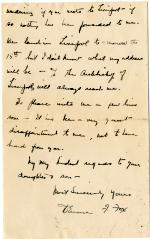 wondering if you wrote to Liverpool - if
so nothing has been forwarded to me.
We land in Liverpool to-morrow the
15th but I don't know what my address
will be - c/o the Archbishop of
Liverpool will always reach me.
So please write me a few lines
soon - It has been a very great
disappointment to me, not to have
heard from you.
With my kindest regards to your
daughter & son -
Most Sincerely Yours
Fox